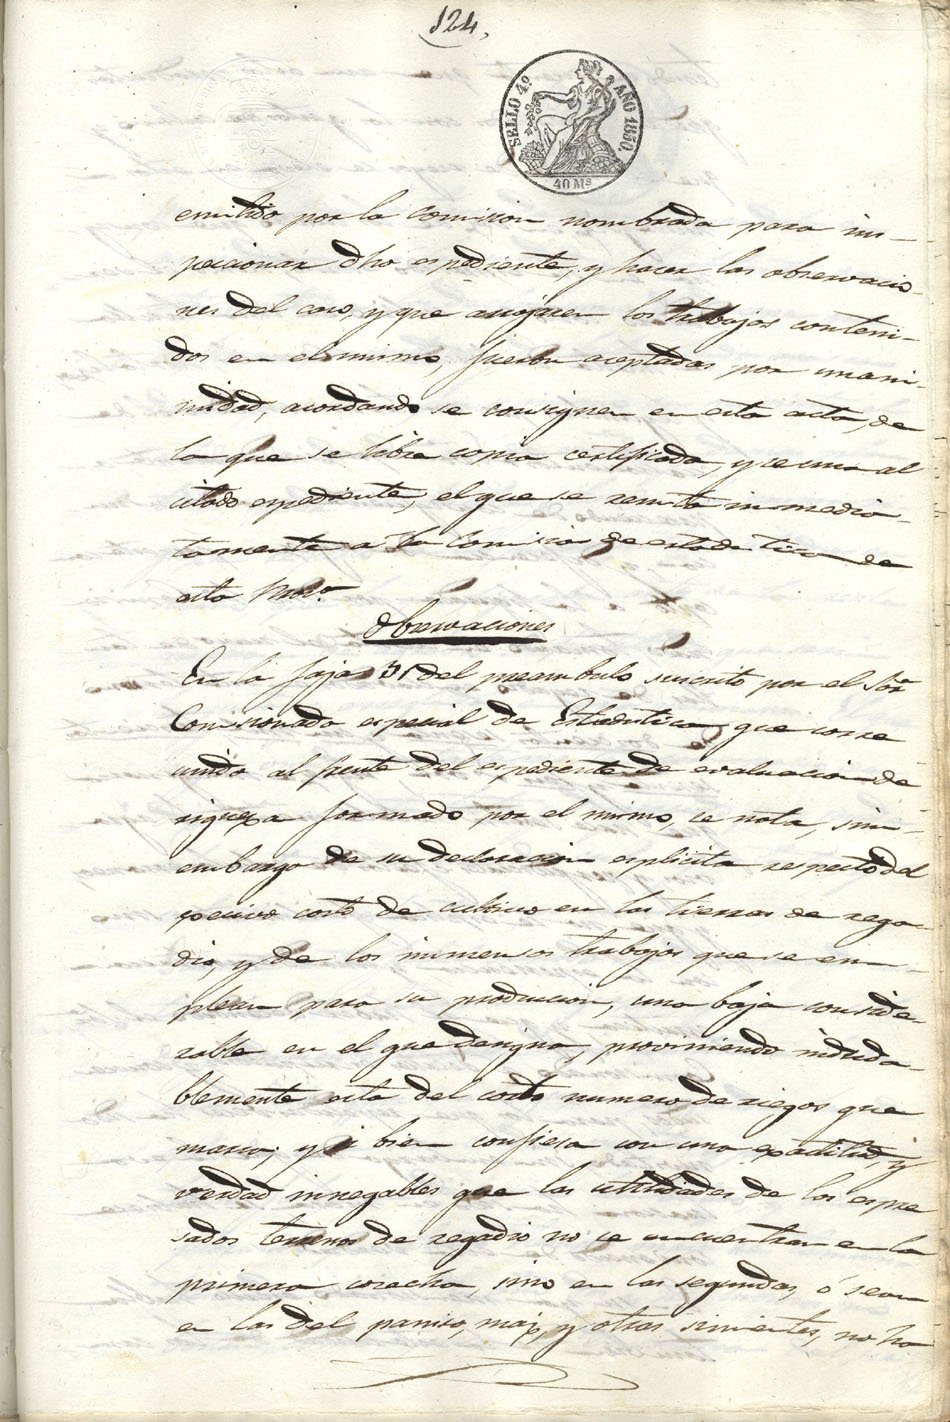 124,
SELLO 4º AÑO 1850.
40 Ms
emitido por la comision nombrada para ins-
peccionar dho espediente, y hacer las observacio-
nes del caso, y que arrojasen los trabajos conteni-
dos en el mismo, fueron aceptadas por unani-
midad, acordando se consignen en esta acta, de
la que se libre copia certificada, y se una al
citado espediente, el que se remita inmedia-
tamente a la Comision de estadistica de
esta
Observaciones
En la foja 31 del preambulo suscrito por el Sor
Comisionado especial de Estadistica, que corre
unido al frente del espediente de evaluacion de
riqueza formado por el mismo, se nota, sin
embargo de su declaracion esplicita respecto del
escesivo costo de cultivo en las tierras de rega-
dio, y de los inmensos trabajos que se em-
plean para su produccion, una baja conside-
rable en el que designa, proviniendo induda-
blemente esta del corto numero de riegos que
marca; y si bien confiesa con una exactitud, y
verdad innegables que las utilidades de los espre
sados terrenos de regadio no se encuentran en la
primera cosecha, sino en las segundas, ó sean
en las del panizo, maiz, y otras simientes, no ha